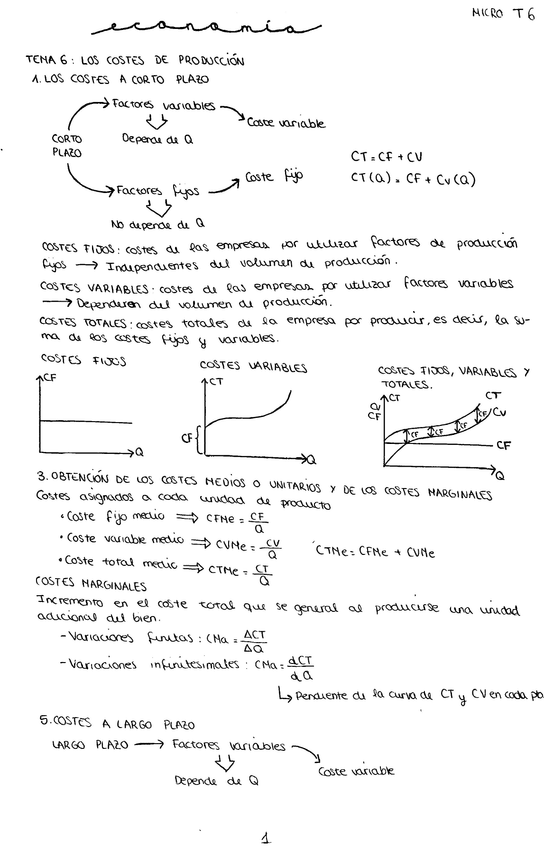 MICRO T6
economía
TEMA 6: LOS COSTES DE PRODUCCIÓN
1. LOS COSTES A CORTO PLAZO
Factores variables
Coste variable
CORTO PLAZO
Depende de Q
CT = CF + CV
CT(Q) = CF + Cv(Q)
Factores fijos
Coste fijo
No depende de Q
COSTES FIJOS: costes de las empresas por utilizar factores de producción
fijos → Independientes del volumen de producción.
COSTES VARIABLES: costes de las empresas por utilizar factores variables
→ Dependeren del volumen de producción.
COSTES TOTALES: costes totales de la empresa por producir, es decir, la su-
ma de los costes fijos y variables.
COSTES FIJOS
COSTES VARIABLES
COSTES FIJOS, VARIABLES Y
TOTALES.
CF
Q
CT
CF
Q
CT
CV
CF
CT
CV
CF
CF
CF
CF
CF
Q
3. OBTENCIÓN DE LOS COSTES MEDIOS O UNITARIOS Y DE LOS COSTES MARGINALES
Costes asignados a cada unidad de producto
• Coste fijo medio ⇒ CFMe = CF/Q
• Coste variable medio ⇒ CVMe = CV/Q
CTMe = CFMe + CVMe
• Coste total medio ⇒ CTMe = CT/Q
COSTES MARGINALES
Incremento en el coste total que se general al producirse una unidad
adicional del bien.
- Variaciones finitas: CMa = ΔCT/ΔQ
- Variaciones infinitesimales: CMa = dCT/dQ
↳ Pendiente de la curva de CT y CV en cada pto
5. COSTES A LARGO PLAZO
LARGO PLAZO → Factores variables
Coste variable
Depende de Q
1